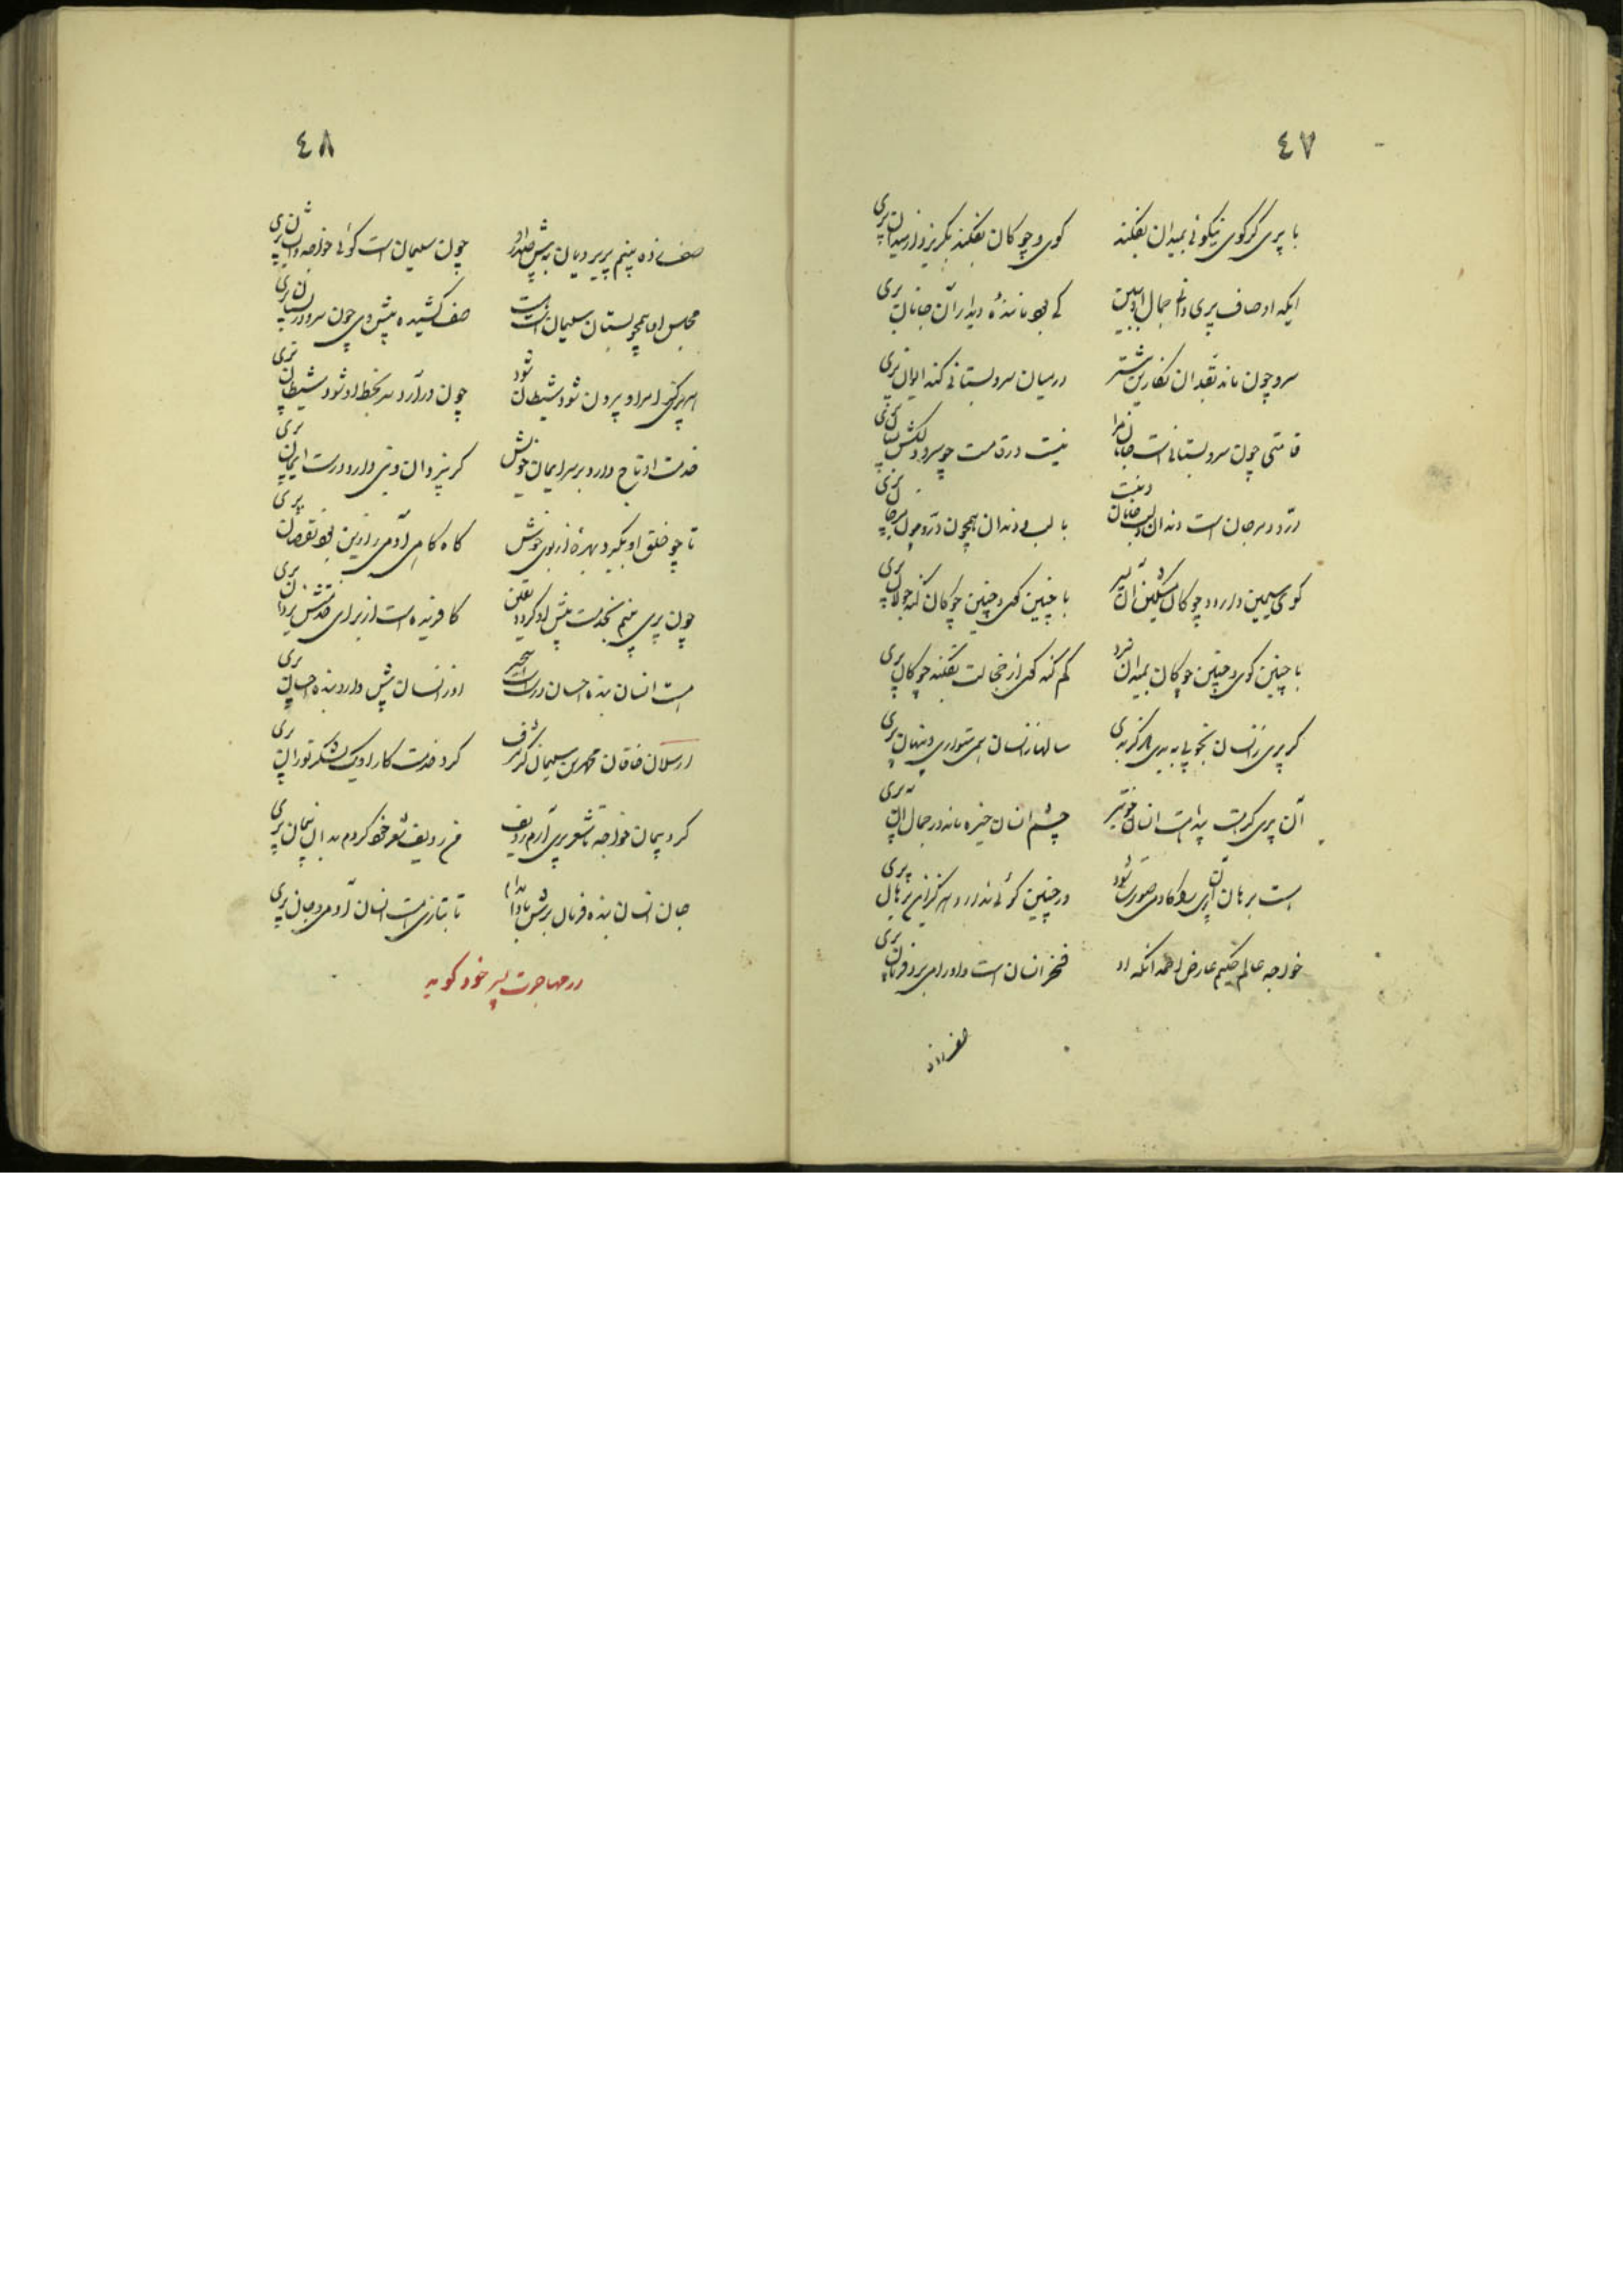 ٤٧
با پری گر گوی نیکوئی بمیدان بفکند کوی و چوکان بفکند بگریزد از میدان پری
ایکه اوصاف پری دانی جمال او ببین کی بود مانندهٔ دیدار آن جانان پری
سرو چون ماند بقد آن نگارین درمیان سرو بستانی کند پری
قامتی چون سرو بستانی است جانان مرا نیست در قامت چو سرو دلکش بستان پری
درّ و مرجان است دندان و لب جانان با لب و دندان همچون درّ و چون مرجان پری
کوی سیمین دارد و چوکان مشکین آن پسر با چنین کوی و چنین چوکان کند جولان پری
با چنین کوی و چنین چوکان بمیدان کم کند کوی از خجالت بفکند چوکان پری
گر پری ز انسان بخوبی سالها ز انسان همی متواری و پنهان پری
آن پری کرنیست انسان چشم انسان خیره ماند در جمال آن پری
هست برهان آن پری را کادمی صورت شود در چنین ندارد هر کز این برهان پری
خواجه عالم حکیم عارض احمد انکه او فخر انسان است و او را می‌برد فرمان پری
صف زده
٤٨
صف زده بینم پریرویان به پیش صدر او چون سلیمان است کوئی خواجه و ایشان پری
مجلس او همچو بستان سلیمان است صف کشیده پیش وی چون سرو در بستان پری
امر او بیرون شود شیطان شود چون درآرد سر بخط او شود شیطان پری
خدمت او تاج دارد بر سر ایمان خویش کر بیزدان دارد درست ایمان پری
تا چو خلق او بگیرد بهرهٔ از بوی خوش کاه کاهی آدمی را زین بود نقصان پری
چون پری بینم بخدمت پیش او کردد یقین کافریده است از برای خدمتش یزدان پری
هست انسان بنده احسان او ز انسان پیش دارد بنده احسان پری
ارسلان خاقان محمد بن سلیمان کز شرف کرد خدمت کار او یک لشکر توران پری
کرد پیمان خواجه تا شعر پری آرم ردیف من ردیف شعر خود کردم بدان پیمان پری
جان انسان بنده فرمان برش بادا مدام تا بتازی هست انسان آدمی و جان پری
در مهاجرت پسر خود کوید